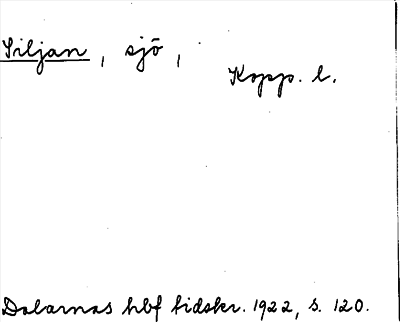 Siljan, sjö,
Kopp. l.
Dalarnas hbf tidskr. 1922, s. 120.